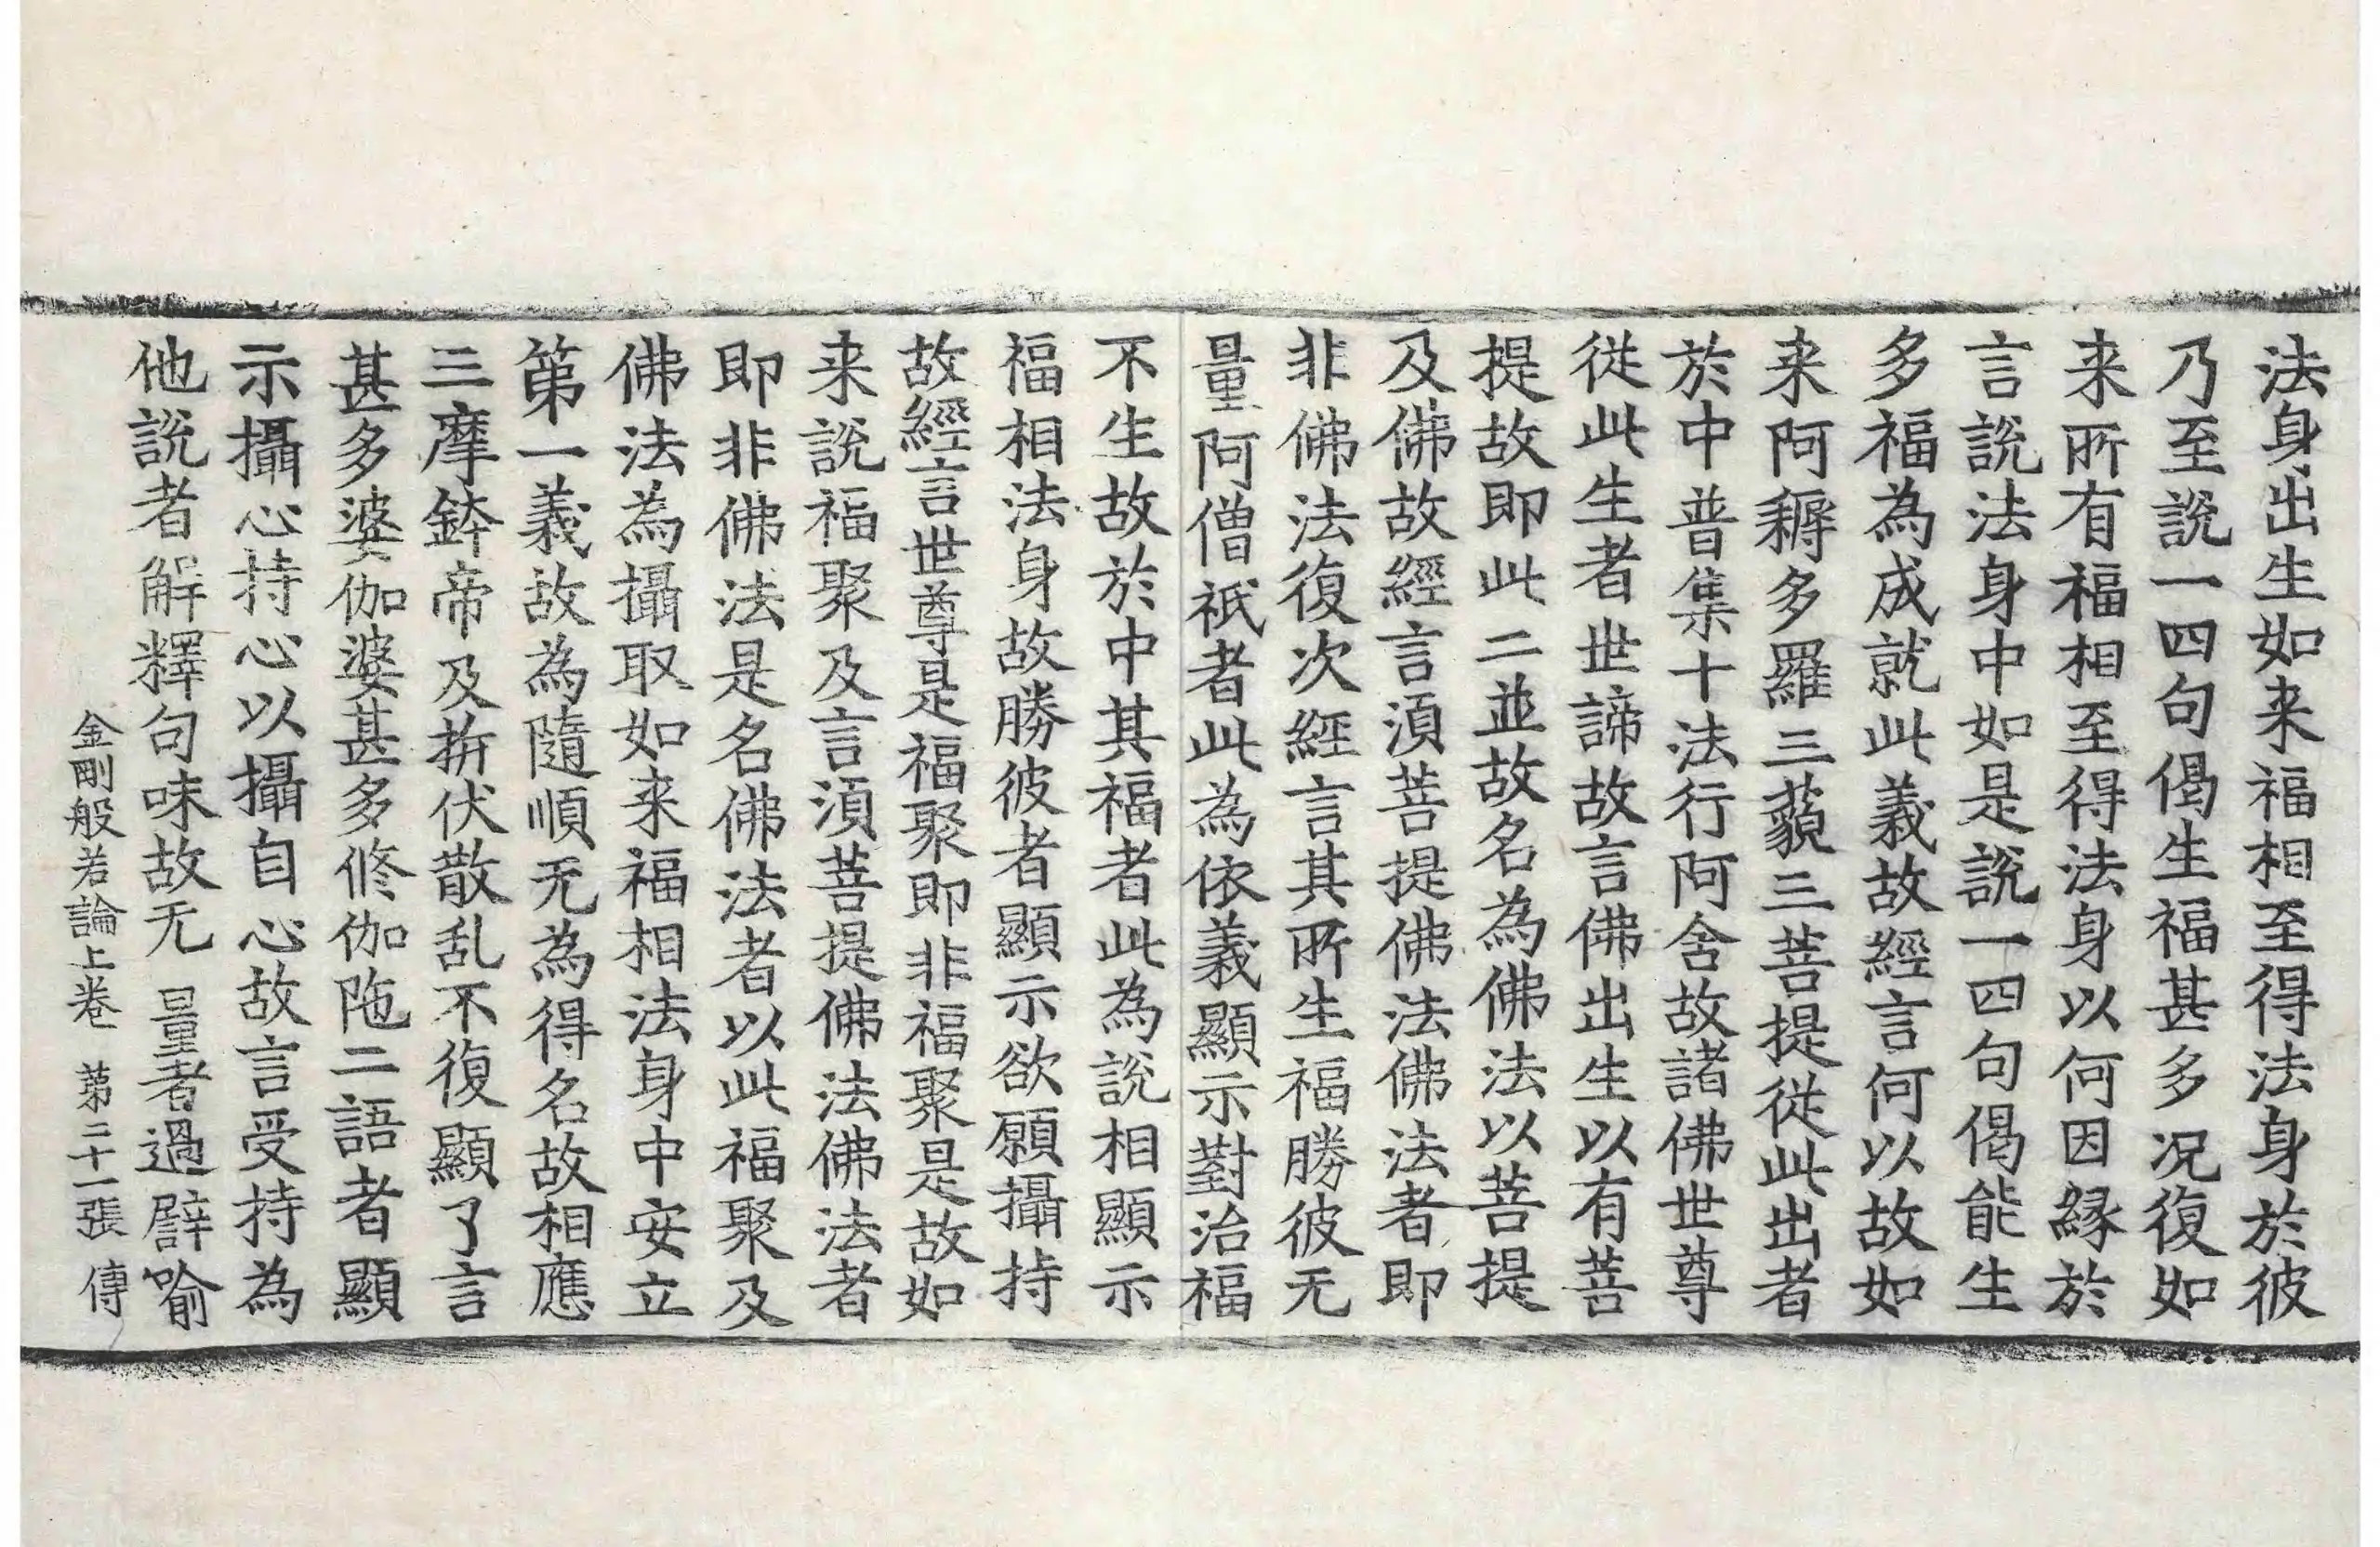 法身出生如来福相至得法身於彼
乃至說一四句偈生福甚多况復如
来所有福相至得法身以何因緣於
言說法身中如是說一四句偈能生
多福為成就此義故經言何以故如
来阿耨多羅三藐三菩提從此出者
於中普集十法行阿含故諸佛世尊
從此生者世諦故言佛出生以有菩
提故即此二並故名為佛法以菩提
及佛故經言湏菩提佛法佛法者即
非佛法復次經言其所生福勝彼无
量阿僧祇者此為依義顯示對治福
不生故於中其福者此為說相顯示
福相法身故勝彼者顯示欲願攝持
故經言世尊是福聚即非福聚是故如
来說福聚及言湏菩提佛法佛法者
即非佛法是名佛法者以此福聚及
佛法為攝取如来福相法身中安立
第一義故為隨順无為得名故相應
三摩鉢帝及折伏散乱不復顯了言
甚多婆伽婆甚多修伽陁二語者顯
示攝心持心以攝自心故言受持為
他說者解釋句味故无 量者過譬喻
金剛般若論上卷 第二十一張 傳